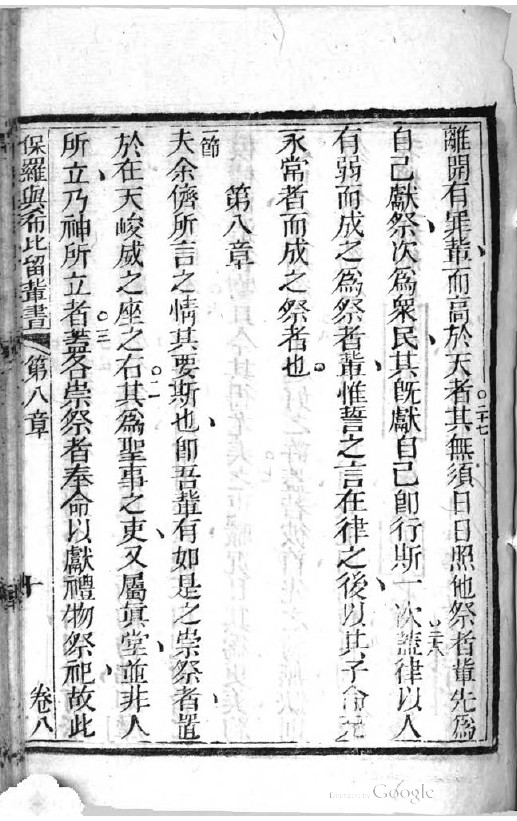 離開有罪輩、而高於天者。二十七其無須日日照他祭者輩先爲
自己獻祭、次爲衆民、其既獻自己、即行斯一次。二十八蓋律以人
有弱而成之爲祭者輩、惟誓之言在律之後、以其子命
永常者而成之祭者也。
第八章
一節
夫余儕所言之情其要斯也、即吾輩有如是之崇祭者、置
於在天峻威之座之右。二其爲聖事之吏、又屬眞堂、並非人
所立、乃神所立者。三蓋各崇祭者奉命以獻禮物祭祀、故此
保羅與希比留輩書 第八章 十 卷八
Digitized by Google